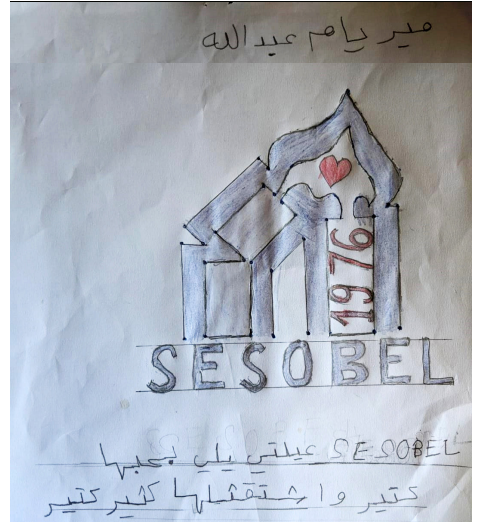 ميريام عبدالله
1976
SESOBEL
SESOBEL عيلتي يلي بحبها
كتير واشتقتلها كثير كتير